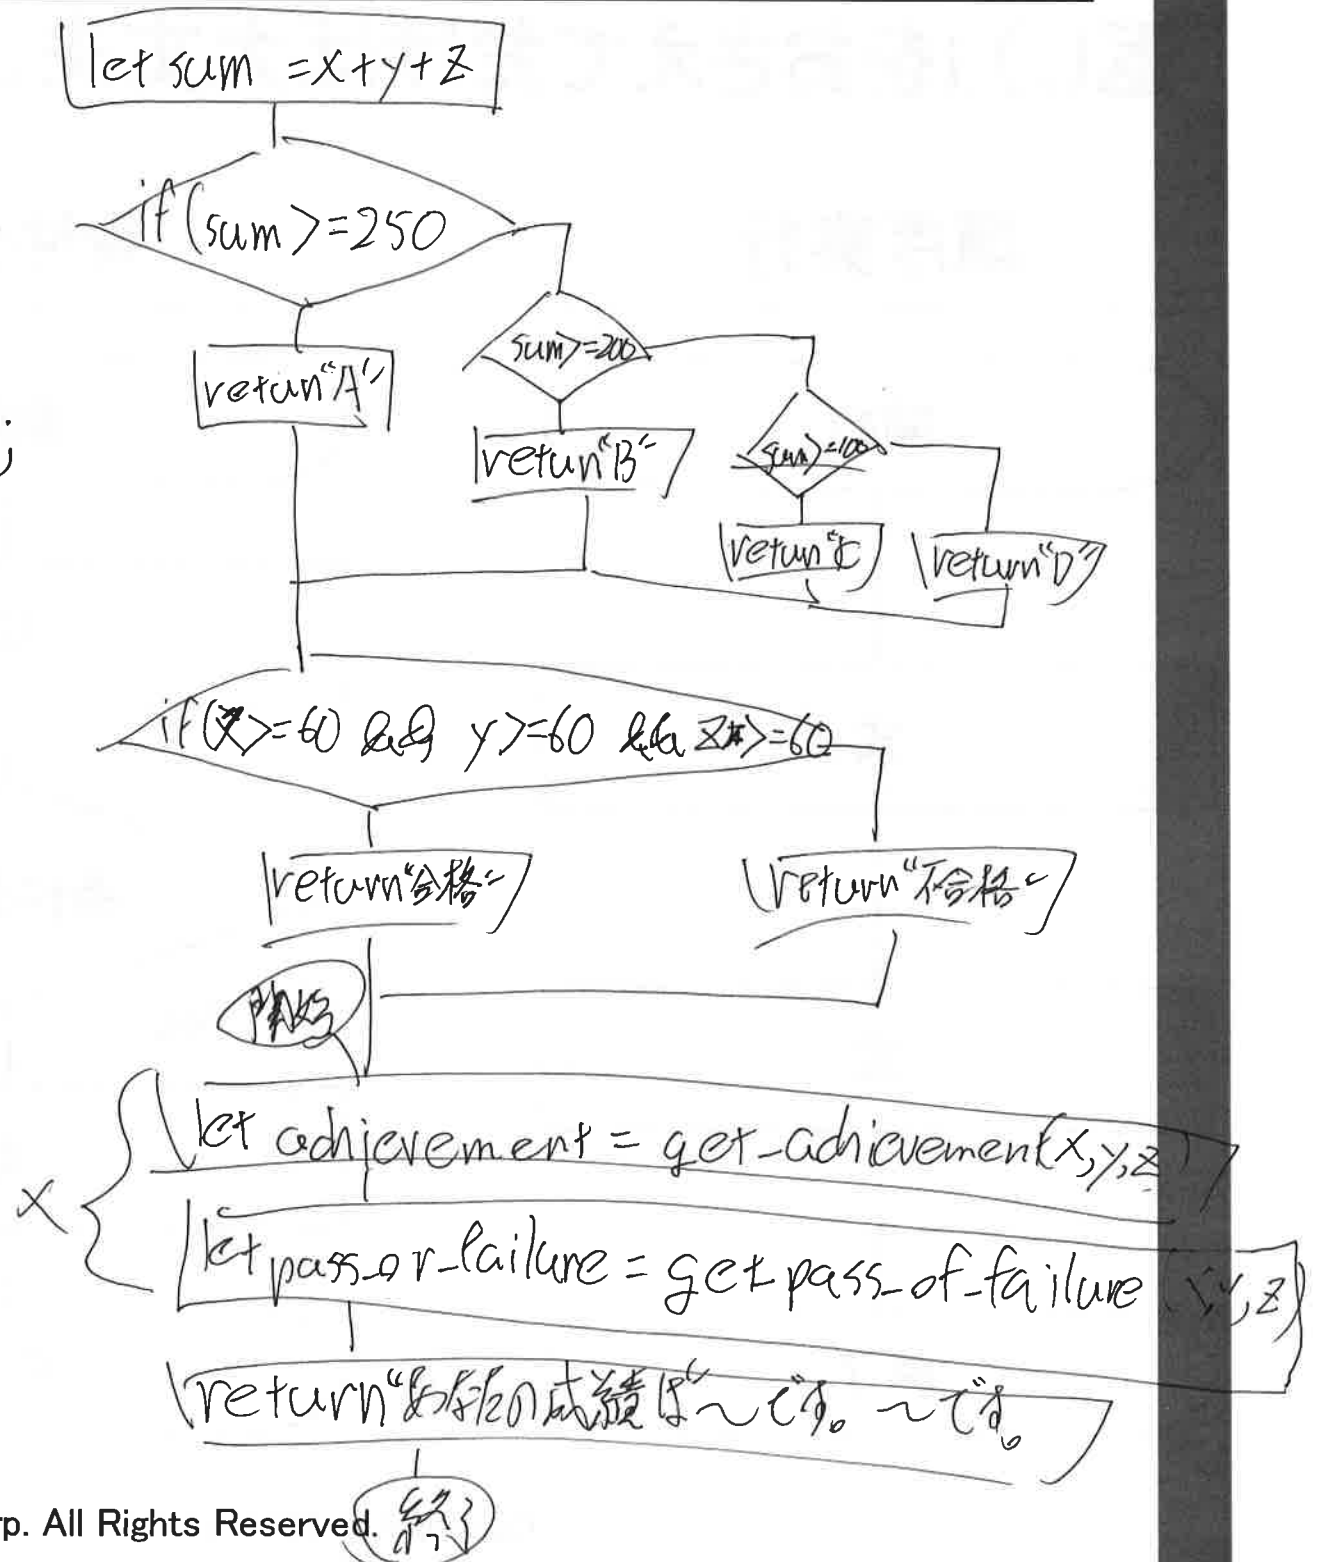 let sum = x+y+z
if(sum>=250
sum>=200
retun"A"
;
retun"B"
sum>=100
retun"C
return"D"
if(x>=60 && y>=60 && z>=60
return"合格"
return"不合格"
開始
let achievement = get_achievement(x,y,z)
x
let pass_or_failure = get pass_of_failure (x,y,z)
return"あなたの成績は"~です。~です。
rp. All Rights Reserved.
終了